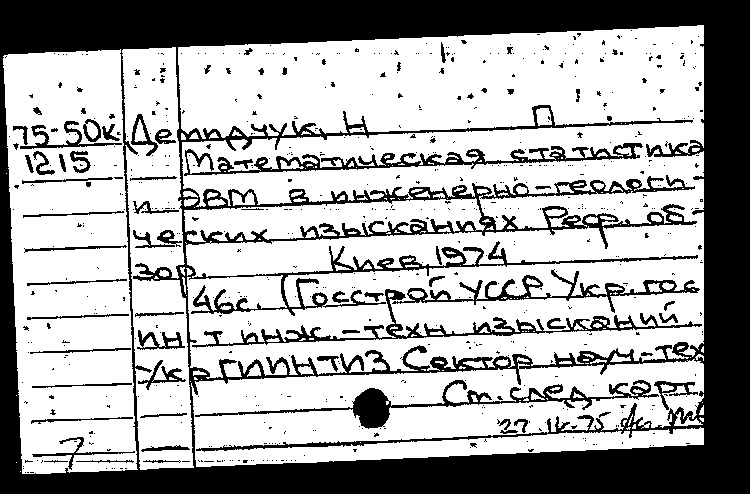 75-50к Демидчук, Н П
1215 Математическая статистика
и ЭВМ в инженерно-геологи-
ческих изысканиях. Реф. об-
зор. Киев, 1974.
46с. (Госстрой УССР. Укр. гос
ин-т инж.-техн. изысканий.
УкрГИИНТИЗ. Сектор науч.-тех
См. след карт.
27.IV-75
7